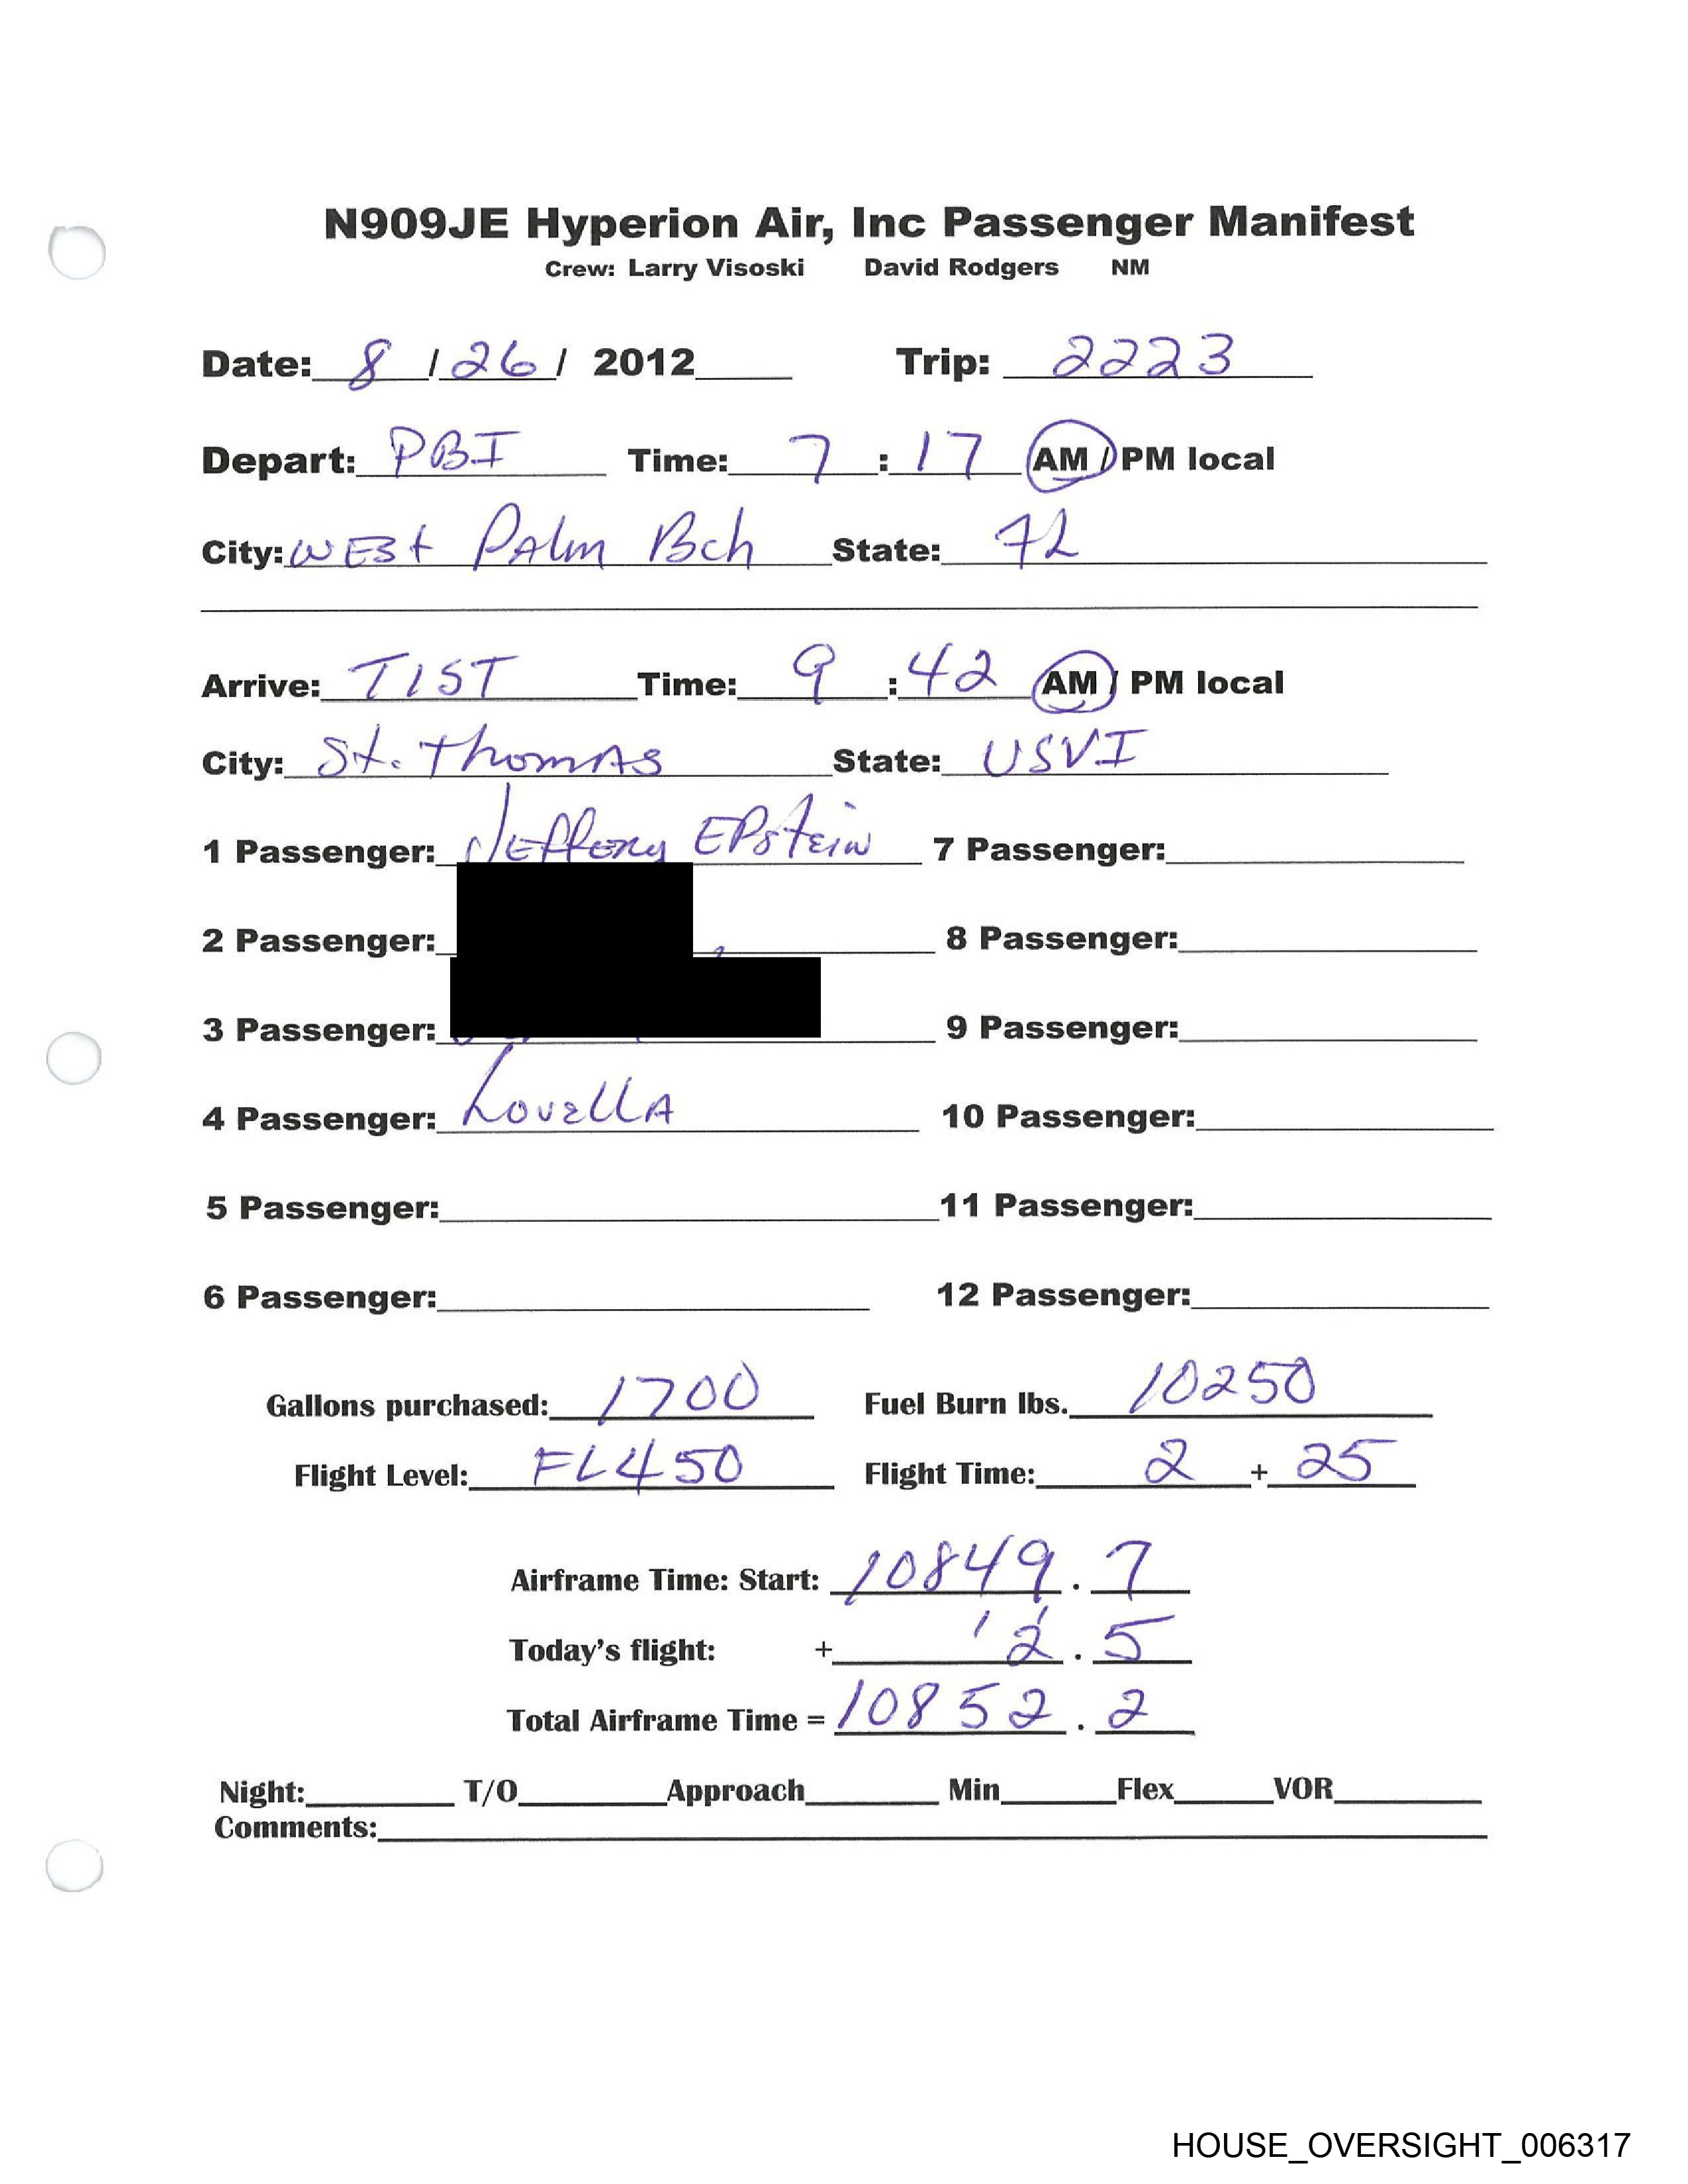 N909JE Hyperion Air, Inc Passenger Manifest
Crew: Larry Visoski David Rodgers NM
Date: 8 / 26 / 2012 Trip: 2223
Depart: PBI Time: 7 : 17 AM / PM local
City: WEST PAlm Bch State: FL
Arrive: TIST Time: 9 : 42 AM / PM local
City: St. ThomAs State: USVI
1 Passenger: JEffery EPstein 7 Passenger:
2 Passenger: 8 Passenger:
3 Passenger: 9 Passenger:
4 Passenger: LovellA 10 Passenger:
5 Passenger: 11 Passenger:
6 Passenger: 12 Passenger:
Gallons purchased: 1700 Fuel Burn lbs. 10250
Flight Level: FL450 Flight Time: 2 + 25
Airframe Time: Start: 10849 . 7
Today's flight: + 2 . 5
Total Airframe Time = 10852 . 2
Night: T/O Approach Min Flex VOR
Comments:
HOUSE_OVERSIGHT_006317